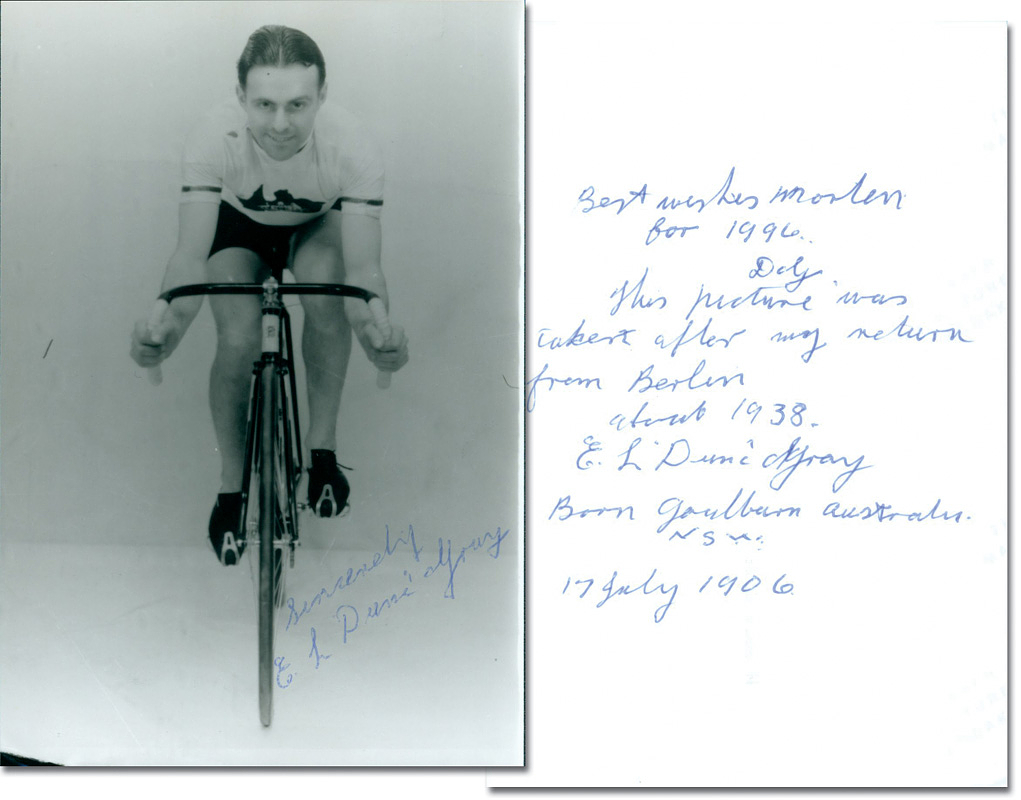 Sincerely
E. L. "Dunc" Gray
Best wishes Morten
for 1996.
This picture was
taken after my return
from Berlin
about 1938.
E. L. "Dunc" Gray
Born Goulburn Australia.
NSW.
17 July 1906